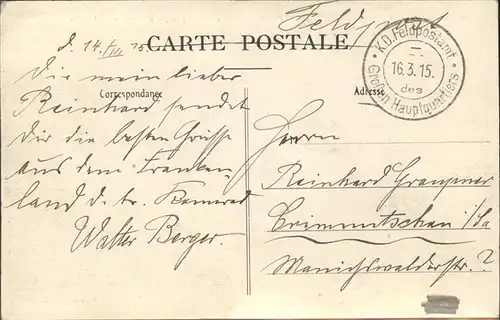 Feldpost
d. 14./III 15
CARTE POSTALE
K.D. Feldpostamt
16.3.15.
des
Großen Hauptquartiers
Correspondance
Adresse
Dir mein lieber
Reinhard sendet
Dir die besten Grüße
aus dem Franken-
land d. tr. Kamerad
Walter Berger.
Herrn
Reinhard
Crimmitschau i/Sa